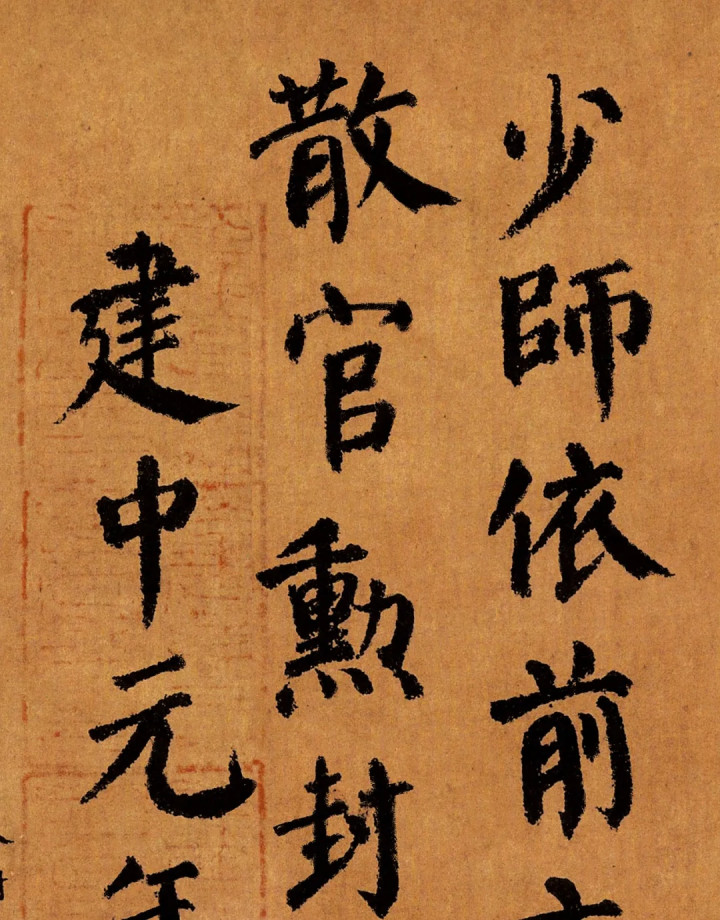 少師依前
散官勲封
建中元年